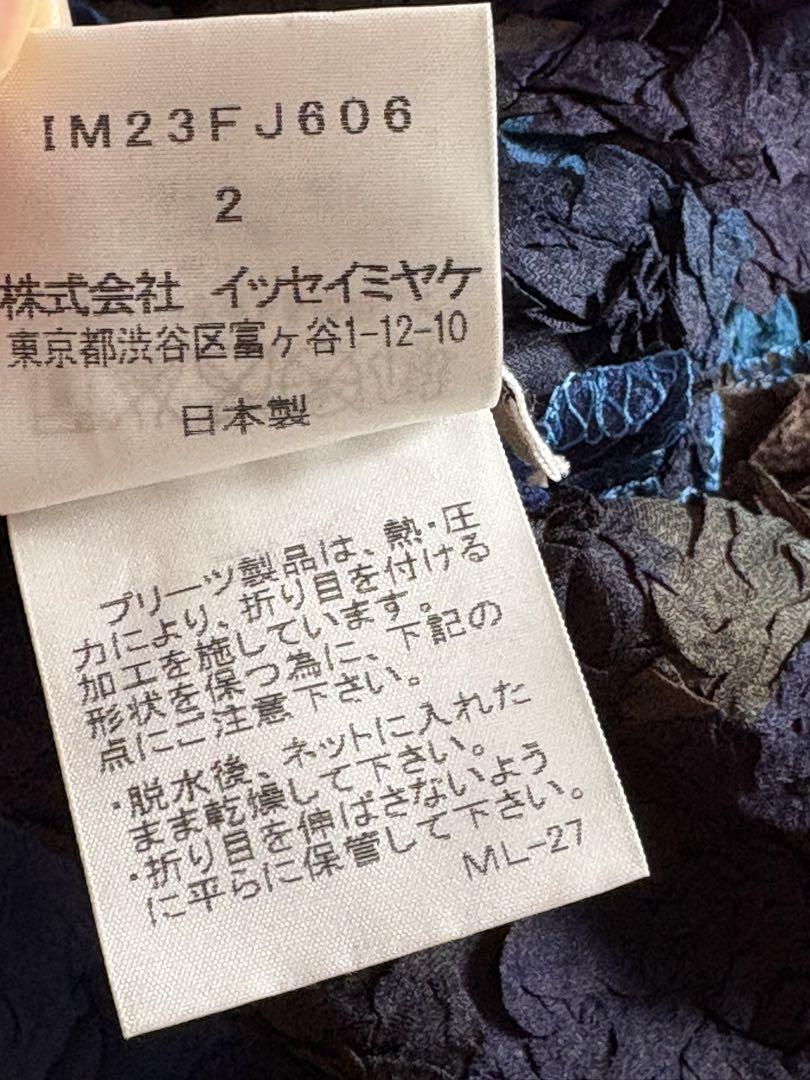 IM23FJ606
2
株式会社 イッセイミヤケ
東京都渋谷区富ヶ谷1-12-10
日本製
プリーツ製品は、熱・圧
力により、折り目を付ける
加工を施しています。
形状を保つ為に、下記の
点にご注意下さい。
・脱水後、ネットに入れた
まま乾燥して下さい。
・折り目を伸ばさないよう
に平らに保管して下さい。
ML-27